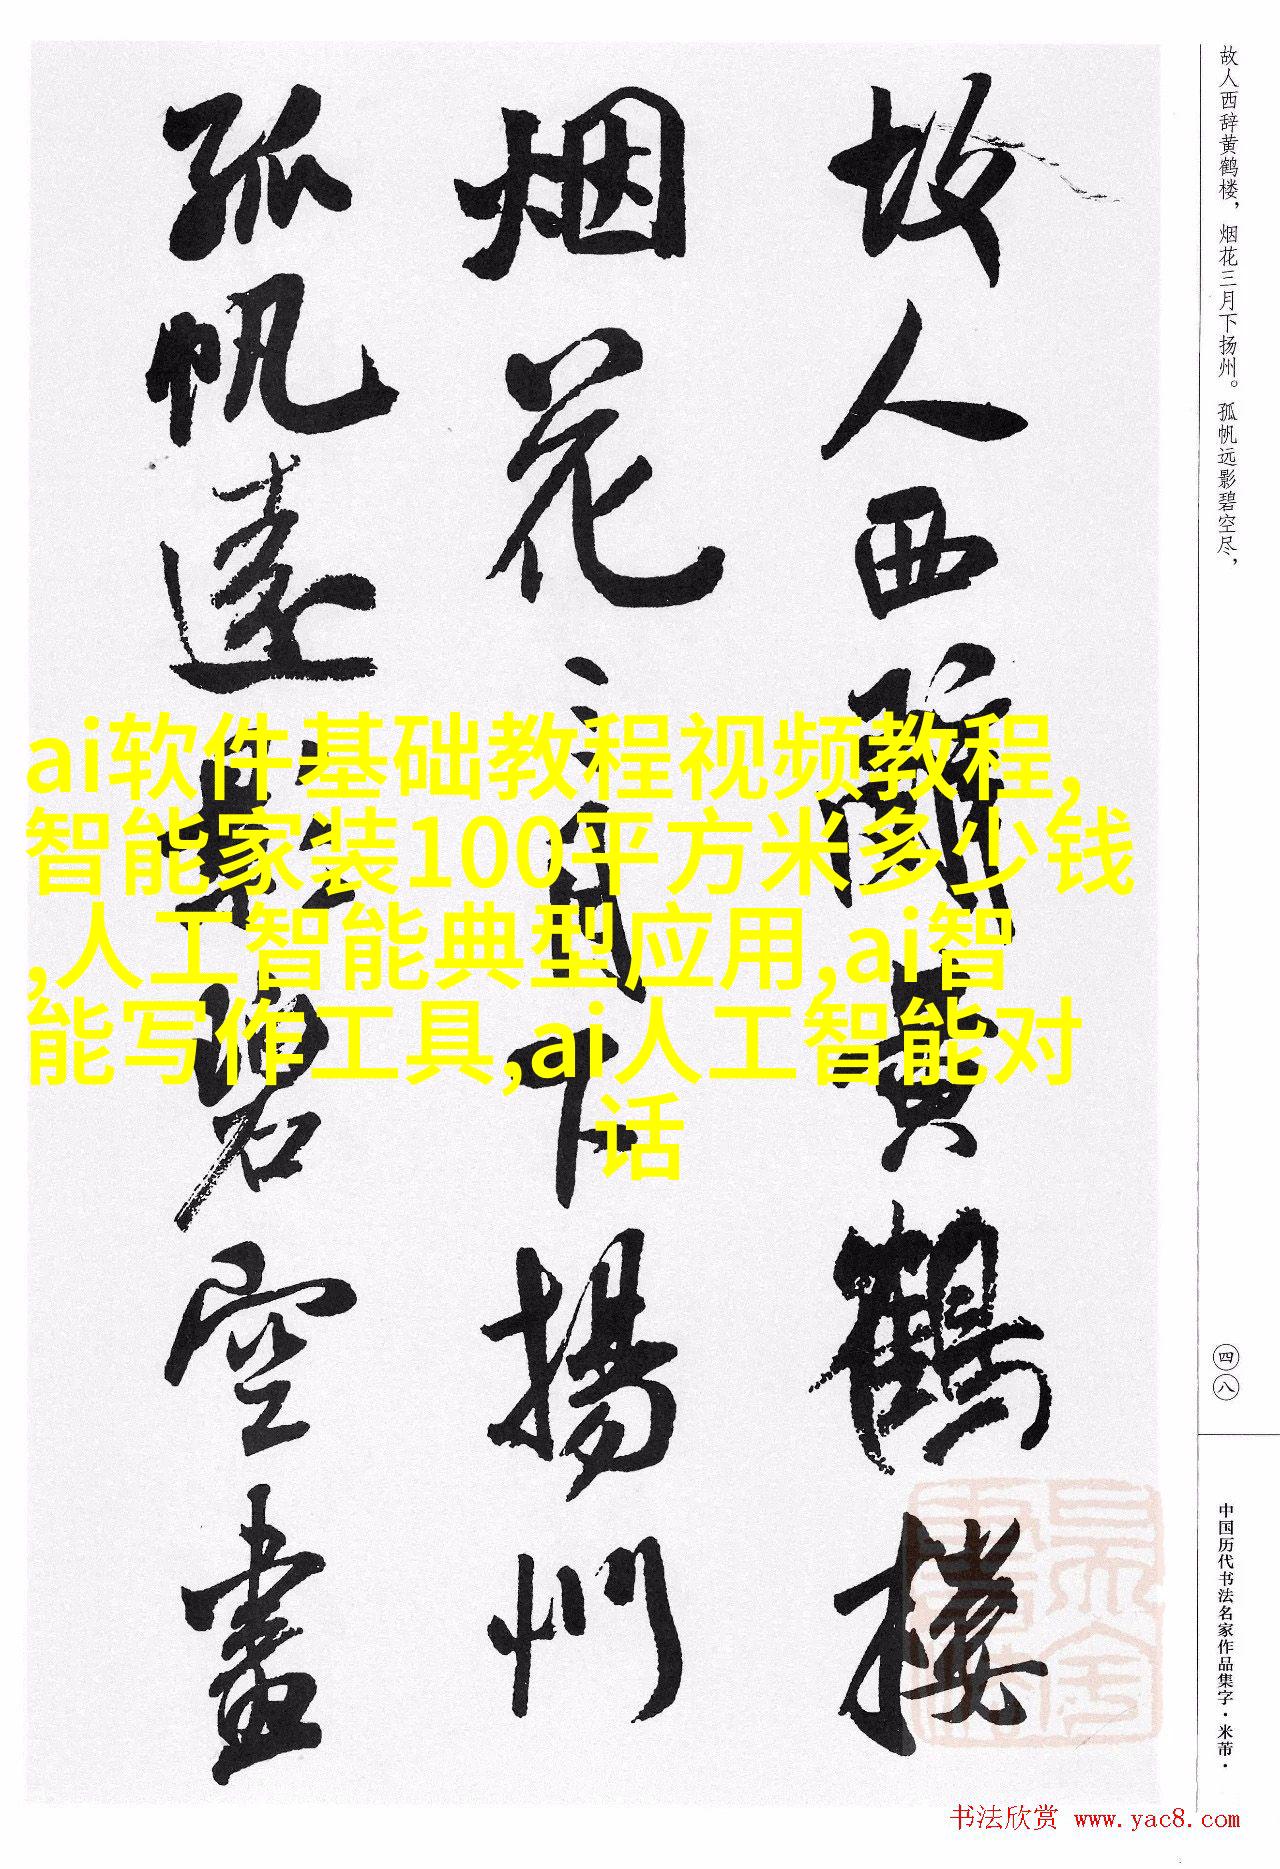 故人西辞黄鹤楼，烟花三月下扬州。孤帆远影碧空尽，
故人西辭黄鶴楼
烟花三月下揚州
孤帆遠影碧空盡
ai软件基础教程视频教程,
智能家装100平方米多少钱
,人工智能典型应用,ai智
能写作工具,ai人工智能对
话
四八
中国历代书法名家作品集字·米芾·
书法欣赏 www.yac8.com